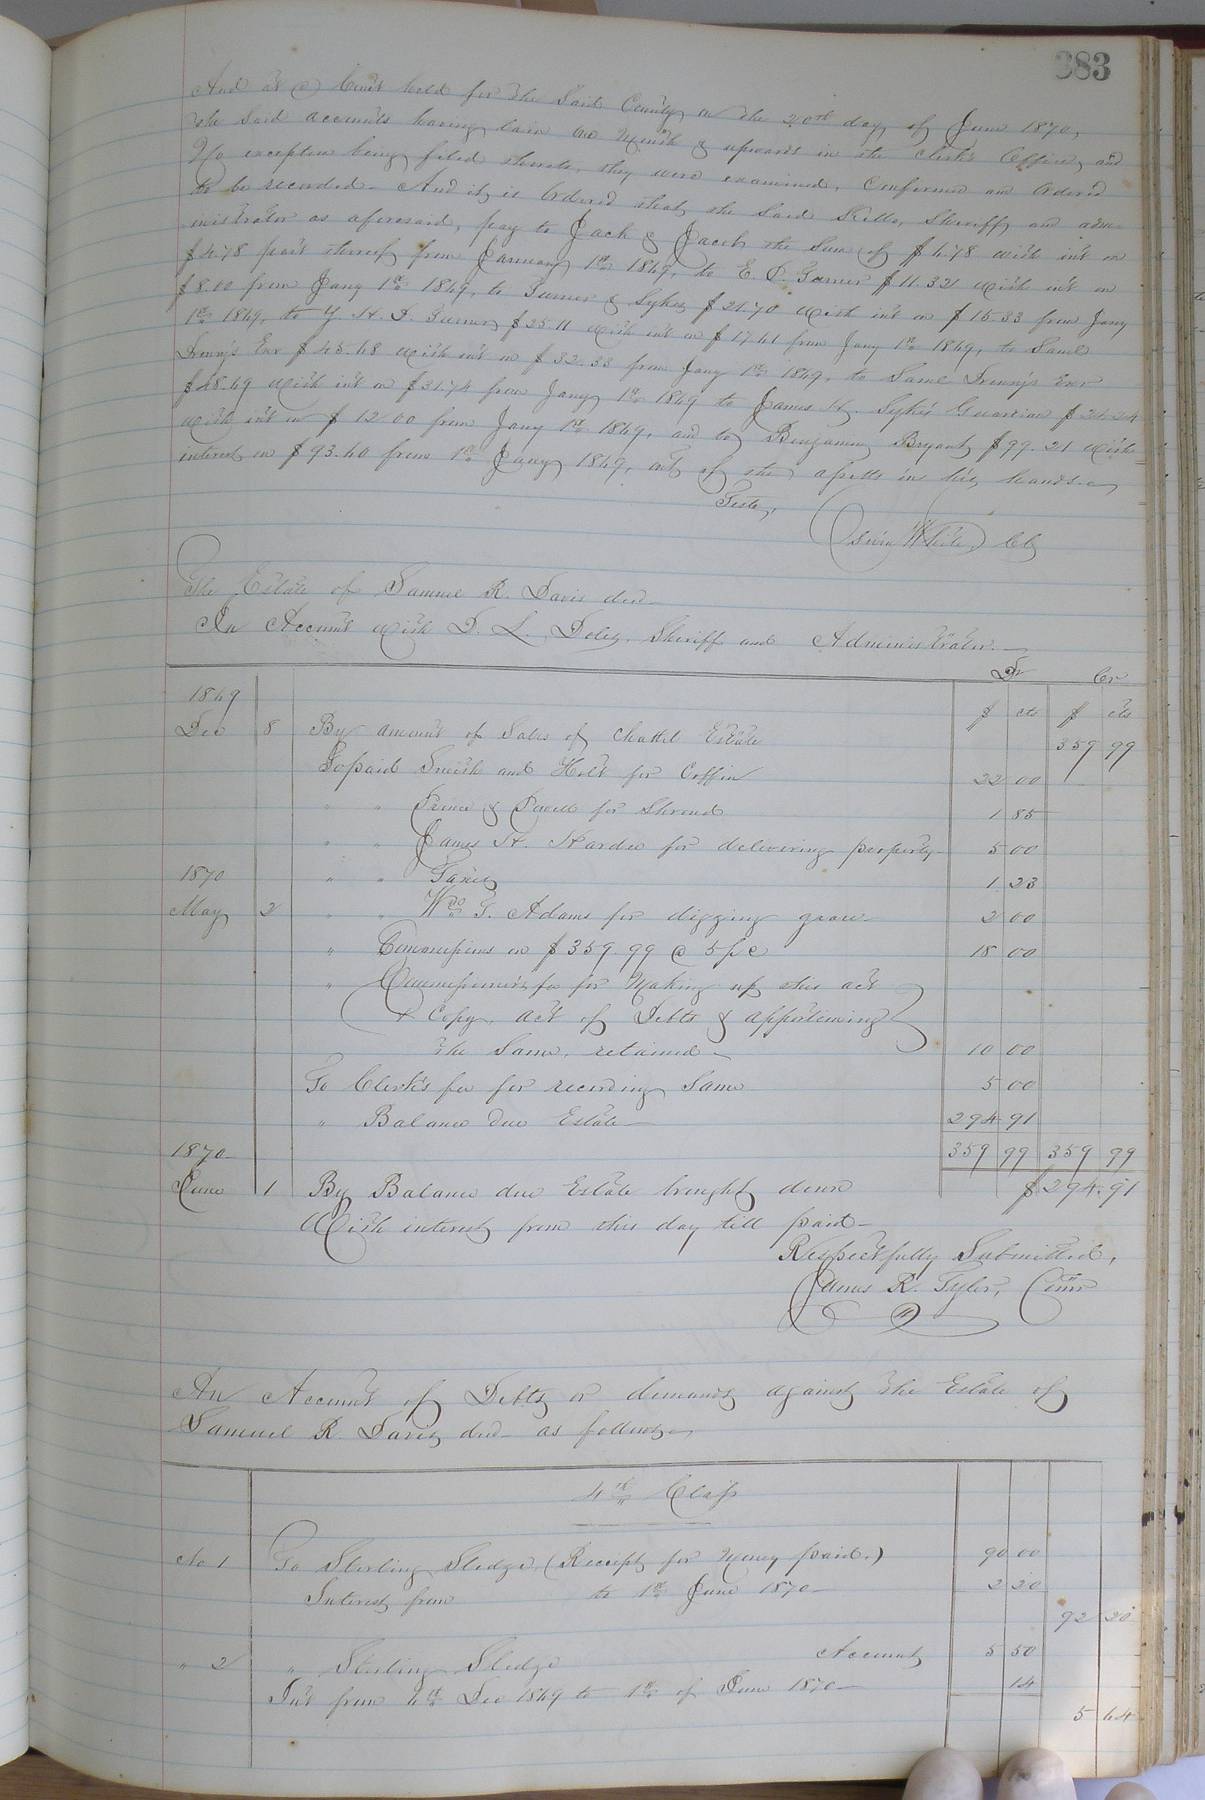 383
And at a Court held for the Said County on the 20th day of June 1870,
the Said accounts having lain one Month & upwards in the Clerk's Office, and
No exception being filed thereto, they were examined, Confirmed and Ordered
to be recorded – And it is Ordered that the Said Sheriff and adm-
inistrator as aforesaid, pay to Jack & Jacob the Sum of $4.78 with int on
$4.78 part thereof from January 1st 1869, to E. P. Turner $11.321 with int on
$8.00 from Jany 1st 1869, to Turner & Sykes $21.70 with int on $15.33 from Jany
1st 1869, to Y. H. D. Turner $25.11 with int on $17.41 from Jany 1st 1869, to Same
Exr $45.68 with int on $32.33 from Jany 1st 1869, to Same Exr
$48.69 with int on $31.74 from Jany 1st 1869 to James H. Sykes Guardian $21.24
with int on $12.00 from Jany 1st 1869, and to Benjamin Bryant $99.21 with
interest on $93.40 from 1st Jany 1869, out of the assetts in his hands.
Teste,
White Clk
The Estate of Samuel R. Davis decd
In Account with D. L. Sheriff and Administrator.
Dr Cr
1869 $ cts $ cts
Dec 8 By amount of Sales of Chattel Estate 359 99
To paid Smith and Holt for Coffin 22 00
" " Prince & Powell for Shroud 1 85
" " James H. Hardee for delivering property 5 00
1870 " " Taxes 1 23
May 2 " " Wm T. Adams for digging grave 2 00
" Commissions on $359 99 @ 5 pc 18 00
" Commissioner's fee for Making up this act
& Copy, act of Debts & apportioning
the Same, retained 10 00
To Clerk's fee for recording Same 5 00
" Balance due Estate 294 91
1870 359 99 359 99
June 1 By Balance due Estate brought down $294.91
With interest from this day till paid
Respectfully Submitted,
James R. Tyler, Comr
An Account of Debts or demands against the Estate of
Samuel R. Davis decd as follows
4th Class
No 1 To Sterling Sledge, (Receipt for Money paid.) 90 00
Interest from to 1st June 1870 2 20
92 20
" 2 " Sterling Sledge Account 5 50
Int from 4th Dec 1869 to 1st of June 1870 14
5 64